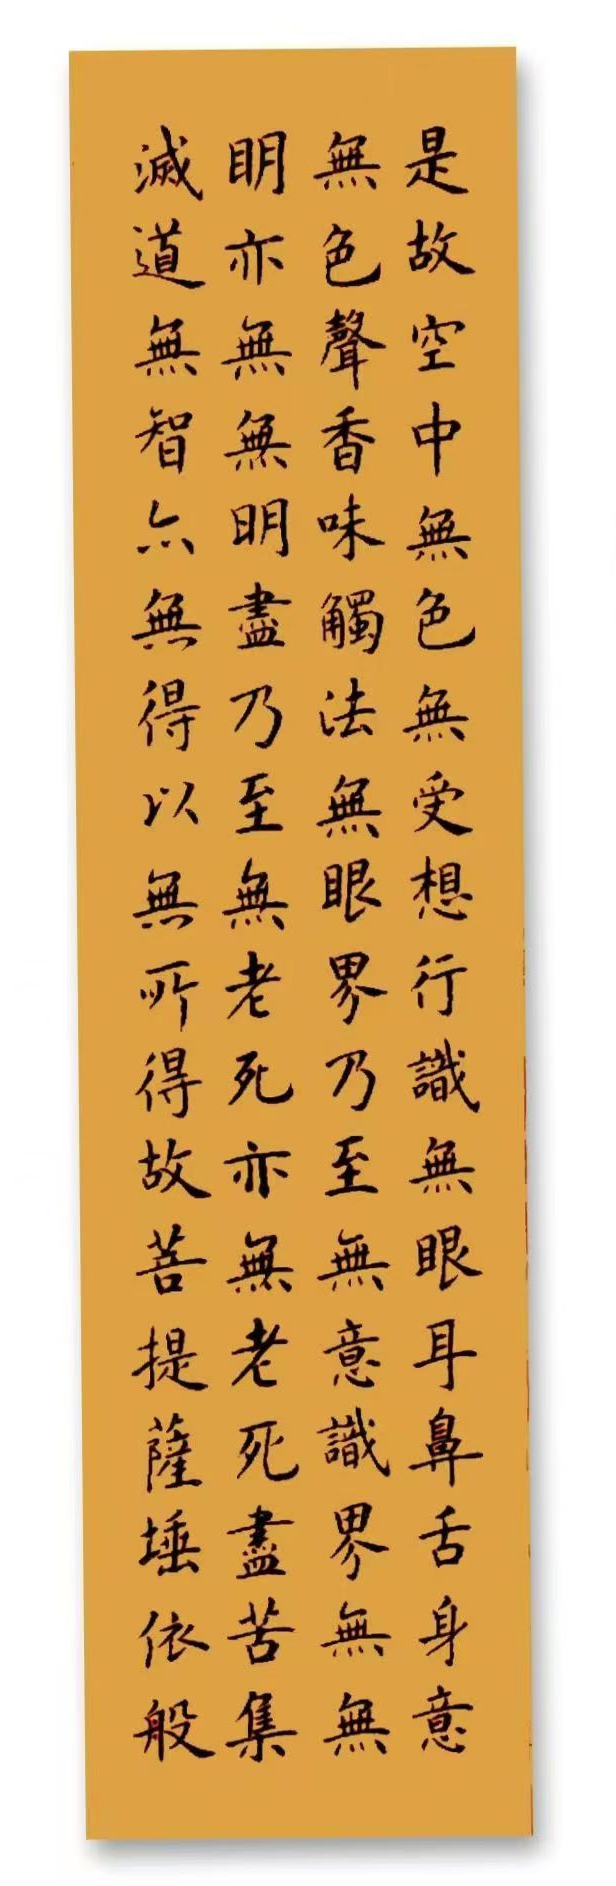 是故空中無色無受想行識無眼耳鼻舌身意
無色聲香味觸法無眼界乃至無意識界無無
明亦無無明盡乃至無老死亦無老死盡苦集
滅道無智亦無得以無所得故菩提薩埵依般